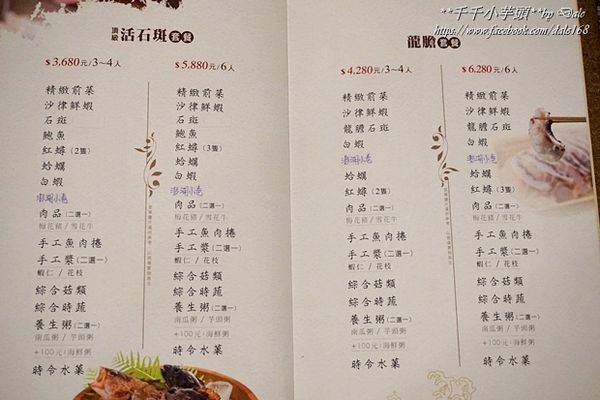 **千千小芋頭**by Dale
https://www.facebook.com/dale168
頂級 活石斑 套餐
$3,680元/3~4人
精緻前菜
沙律鮮蝦
石斑
鮑魚
紅蟳(2隻)
蛤蠣
白蝦
澎湖小卷
肉品(二選一)
梅花豬/雪花牛
手工魚肉捲
手工漿(二選一)
蝦仁/花枝
綜合菇類
綜合時蔬
養生粥(二選一)
南瓜粥/芋頭粥
+100元:海鮮粥
時令水菓
$5,880元/6人
精緻前菜
沙律鮮蝦
石斑
鮑魚
紅蟳(3隻)
蛤蠣
白蝦
澎湖小卷
肉品(二選一)
梅花豬/雪花牛
手工魚肉捲
手工漿(二選一)
蝦仁/花枝
綜合菇類
綜合時蔬(二選一)
養生粥(二選一)
南瓜粥/芋頭粥
+100元:海鮮粥
時令水菓
龍膽 套餐
$4,280元/3~4人
精緻前菜
沙律鮮蝦
龍膽石斑
白蝦
澎湖小卷
蛤蠣
紅蟳(2隻)
肉品(二選一)
梅花豬/雪花牛
手工魚肉捲
手工漿(二選一)
蝦仁/花枝
綜合菇類
綜合時蔬
養生粥(二選一)
南瓜粥/芋頭粥
+100元:海鮮粥
時令水菓
$6,280元/6人
精緻前菜
沙律鮮蝦
龍膽石斑
白蝦
澎湖小卷
蛤蠣
紅蟳(3隻)
肉品(二選一)
梅花豬/雪花牛
手工魚肉捲
手工漿(二選一)
蝦仁/花枝
綜合菇類
綜合時蔬
養生粥(二選一)
南瓜粥/芋頭粥
+100元:海鮮粥
時令水菓